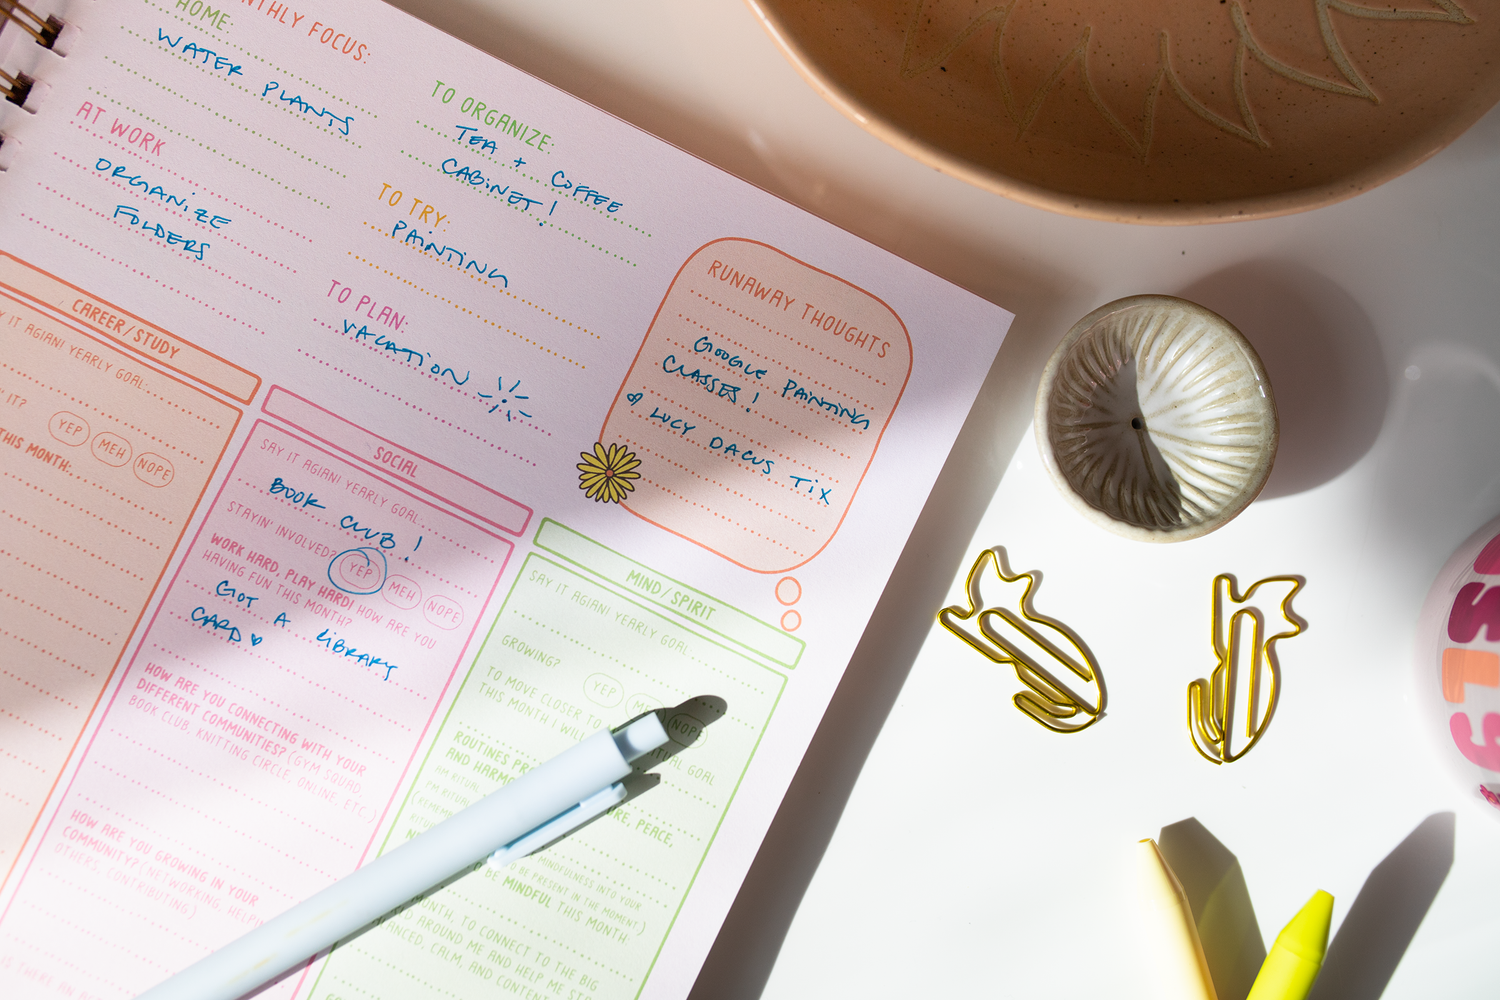 MONTHLY FOCUS:
HOME:
WATER PLANTS
AT WORK
ORGANIZE
FOLDERS
TO ORGANIZE:
TEA + COFFEE
CABINET!
TO TRY:
PAINTING
TO PLAN:
VACATION
RUNAWAY THOUGHTS
GOOGLE PAINTING
CLASSES!
LUCY DACUS TIX
CAREER/STUDY
IT AGIAN! YEARLY GOAL:
IT?
YEP MEH NOPE
THIS MONTH:
SOCIAL
SAY IT AGIAN! YEARLY GOAL:
BOOK CLUB!
STAYIN' INVOLVED?
YEP MEH NOPE
WORK HARD, PLAY HARD! HOW ARE YOU
HAVING FUN THIS MONTH?
GOT A LIBRARY
CARD ♥
HOW ARE YOU CONNECTING WITH YOUR
DIFFERENT COMMUNITIES? (GYM SQUAD,
BOOK CLUB, KNITTING CIRCLE, ONLINE, ETC.)
HOW ARE YOU GROWING IN YOUR
COMMUNITY? (NETWORKING, HELPIN
OTHERS, CONTRIBUTING)
IS THERE AN
MIND/SPIRIT
SAY IT AGIAN! YEARLY GOAL:
GROWING?
YEP ME NOPE
TO MOVE CLOSER TO M
THIS MONTH I WILL
GOAL
ROUTINES
AND HARM
AM RITUAL
PM RITUAL
PEACE,
MINDFULNESS INTO YOUR
BE PRESENT IN THE MOMENT.)
BE MINDFUL THIS MONTH:
MONTH, TO CONNECT TO THE BIG
AROUND ME AND HELP ME
CALM, AND